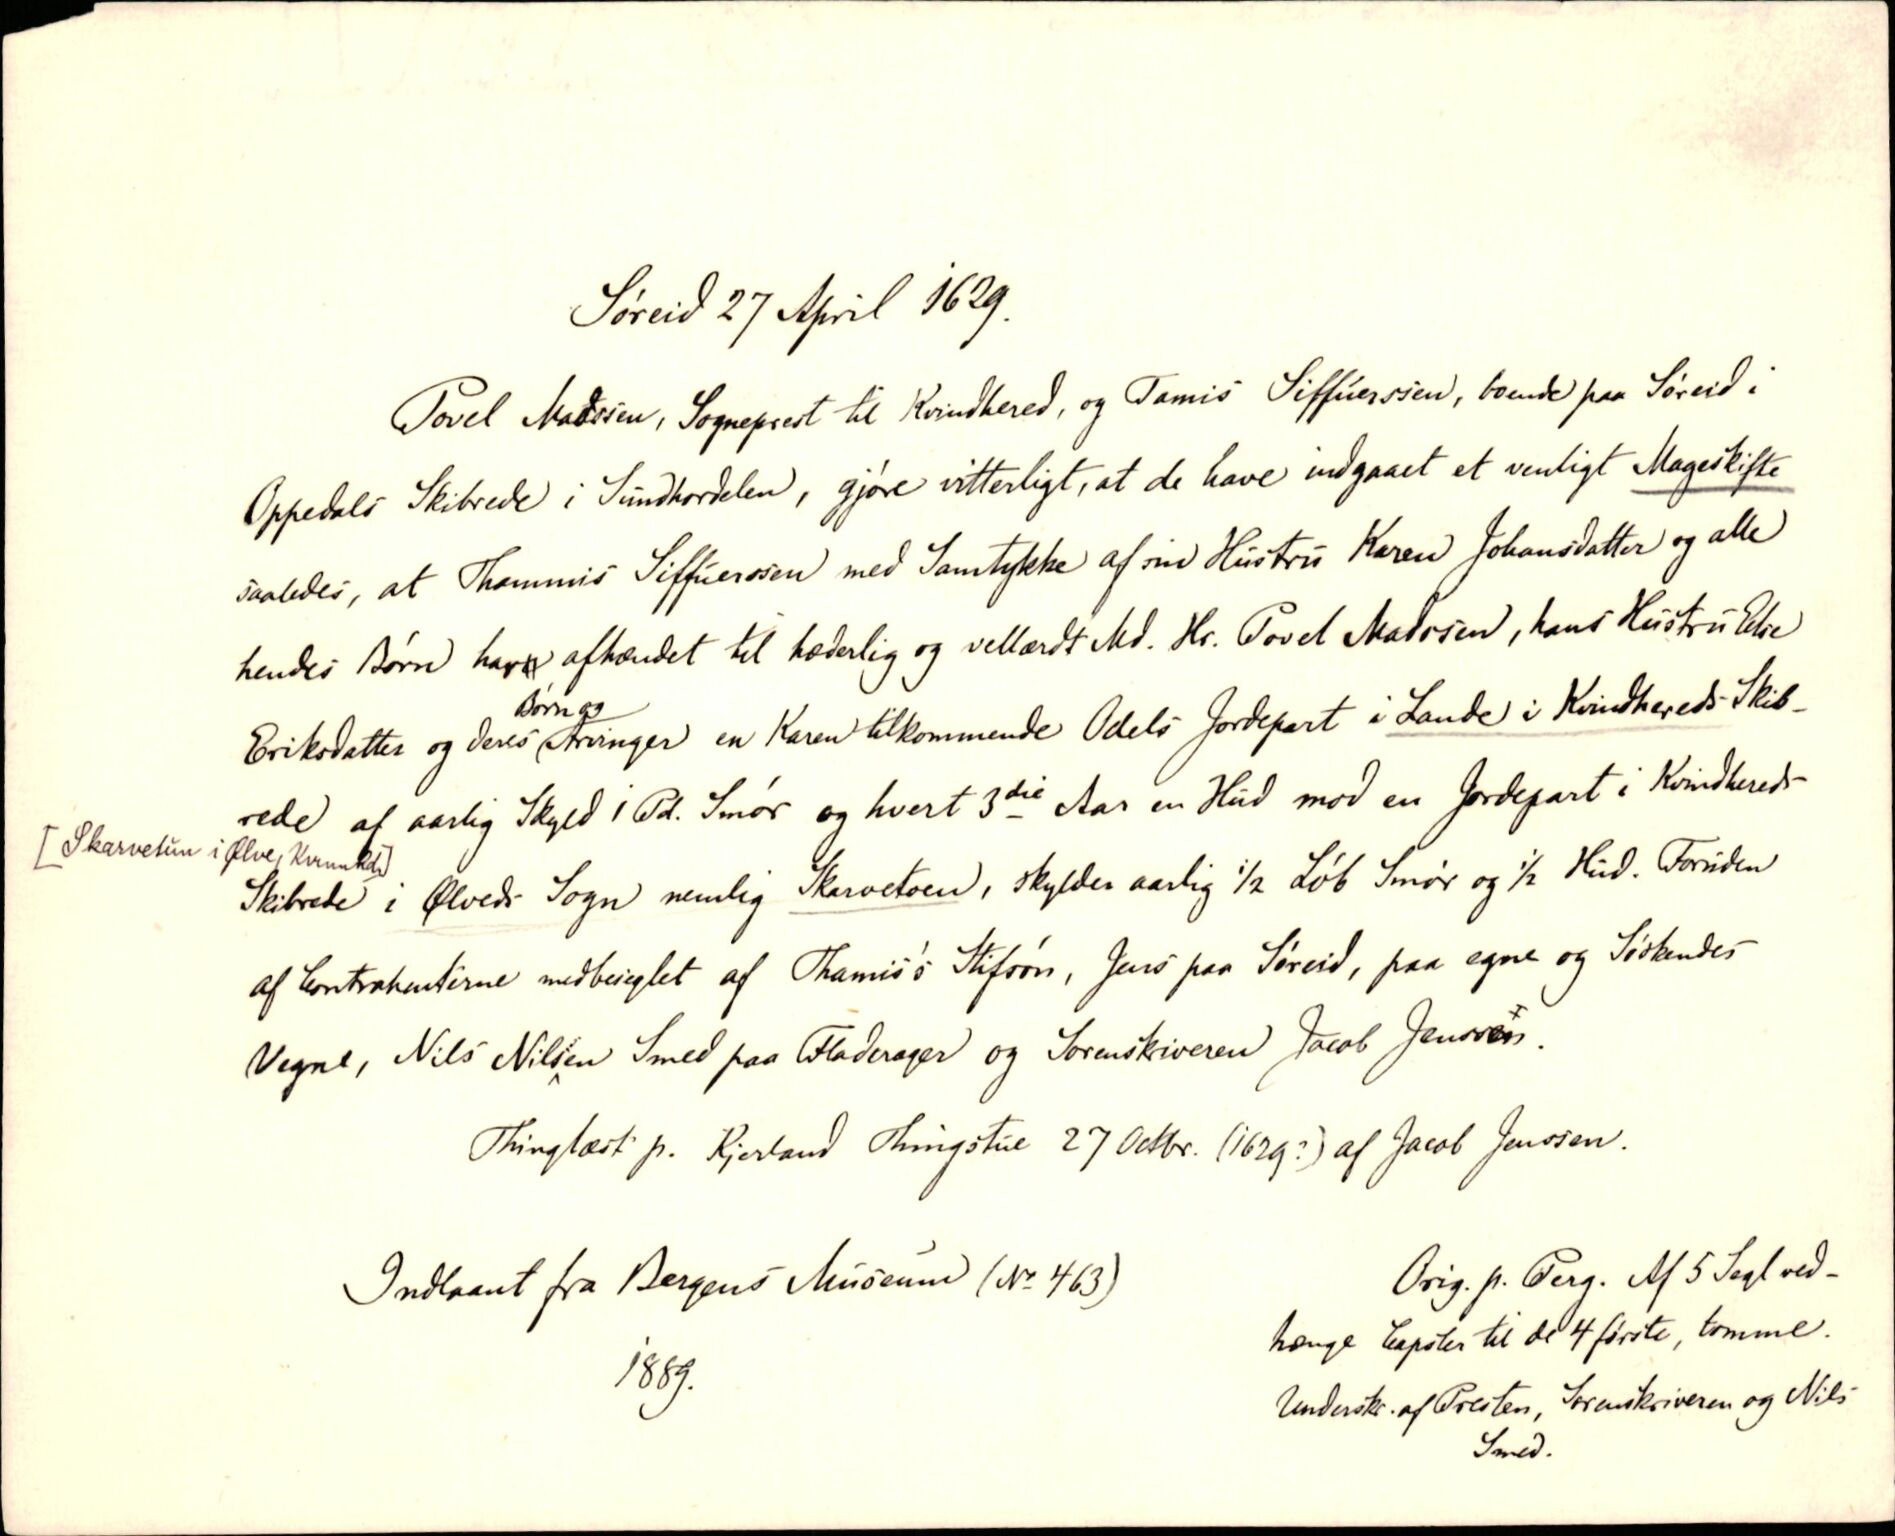 Söreid 27 April 1629.
Povel Madssen, Sogneprest til Kvindhered, og Tamis Siffuerssen, boende paa Söreid i
Oppedals Skibrede i Sundhordelen, gjöre vitterligt, at de have indgaaet et venligt Mageskifte
saaledes, at Thammis Siffuerssen med Samtykke af sin Hustru Karen Johansdatter og alle
hendes Börn har afhændet til hæderlig og vellærdt Md. Hr. Povel Madssen, hans Hustru Else
Börn og
Eriksdatter og deres Arvinger en Karen tilkommende Odels Jordepart i Lande i Kvindhereds Skib-
rede af aarlig Skyld 1 Pd. Smör og hvert 3die Aar en Hud mod en Jordepart i Kvindhereds
[Skarvetun i Ølve, Kvinnhd.]
Skibrede i Ølveds Sogn nemlig Skarvetoen, skylder aarlig 1/2 Löb Smör og 1/2 Hud. Foruden
af Contrahenterne medbeseglet af Thamis's Stifsön, Jens paa Söreid, paa egne og Söskendes
Vegne, Nils Nilssen Smed paa Fladerager og Sorenskriveren Jacob Jenssen.
Thinglæst p. Kjerland Thingstue 27 Octbr. (1629?) af Jacob Jenssen.
Indlaant fra Bergens Museum (No 463)
1889.
Orig. p. Perg. Af 5 Segl ved-
hænge Capsler til de 4 förste, tomme.
Underskr. af Presten, Sorenskriveren og Nils
Smed.